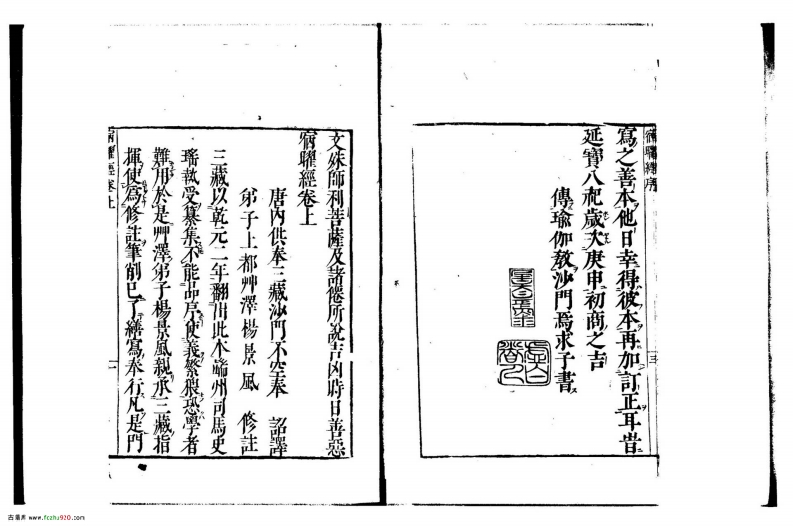 宿曜經序
寫之善本他日幸得彼本再加訂正耳旹
延寶八祀歲次庚申初商之吉
傳瑜伽教沙門焉求子書
三
文殊師利菩薩及諸僊所說吉凶時日善惡
宿曜經卷上
唐內供奉三藏沙門不空奉 詔譯
弟子上都艸澤楊景風 修註
三藏以乾元二年翻出此本端州司馬史
瑤執受纂集不能品序使義繁猥恐學者
難用於是艸澤弟子楊景風親承三藏指
揮使為修註筆削已了繕寫奉行凡是門
宿曜經卷上
一
古籍库 www.fozhu920.com